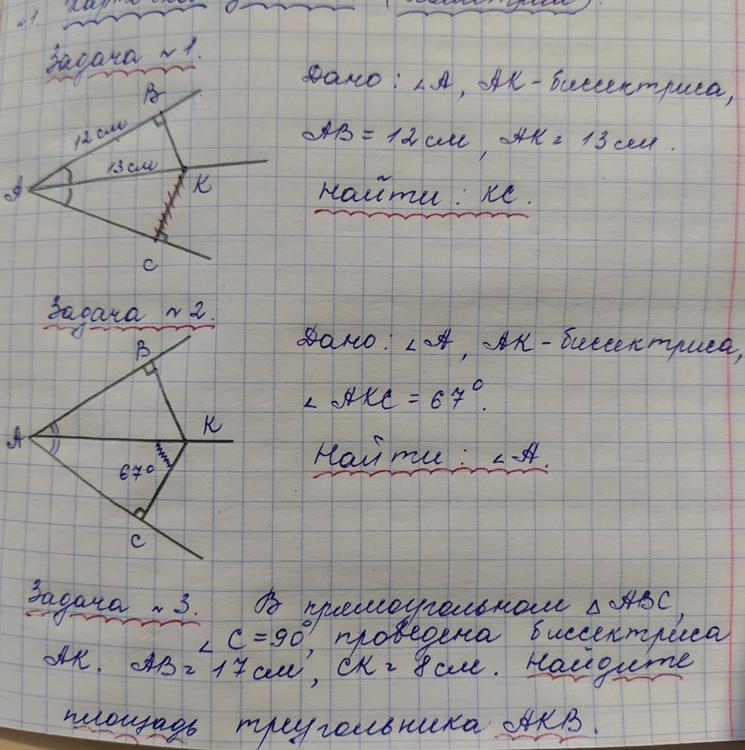 №1.
Задача №1.
Дано: ∠A, AK-биссектриса,
AB = 12 см, AK = 13 см.
Найти: KC.
B
12 см
13 см
A
K
C
Задача №2.
Дано: ∠A, AK-биссектриса,
∠AKC = 67°.
Найти: ∠A.
B
A
K
67°
C
Задача №3. В прямоугольном △ABC,
∠C=90°, проведена биссектриса
AK. AB=17 см, CK=8 см. Найдите
площадь треугольника AKB.